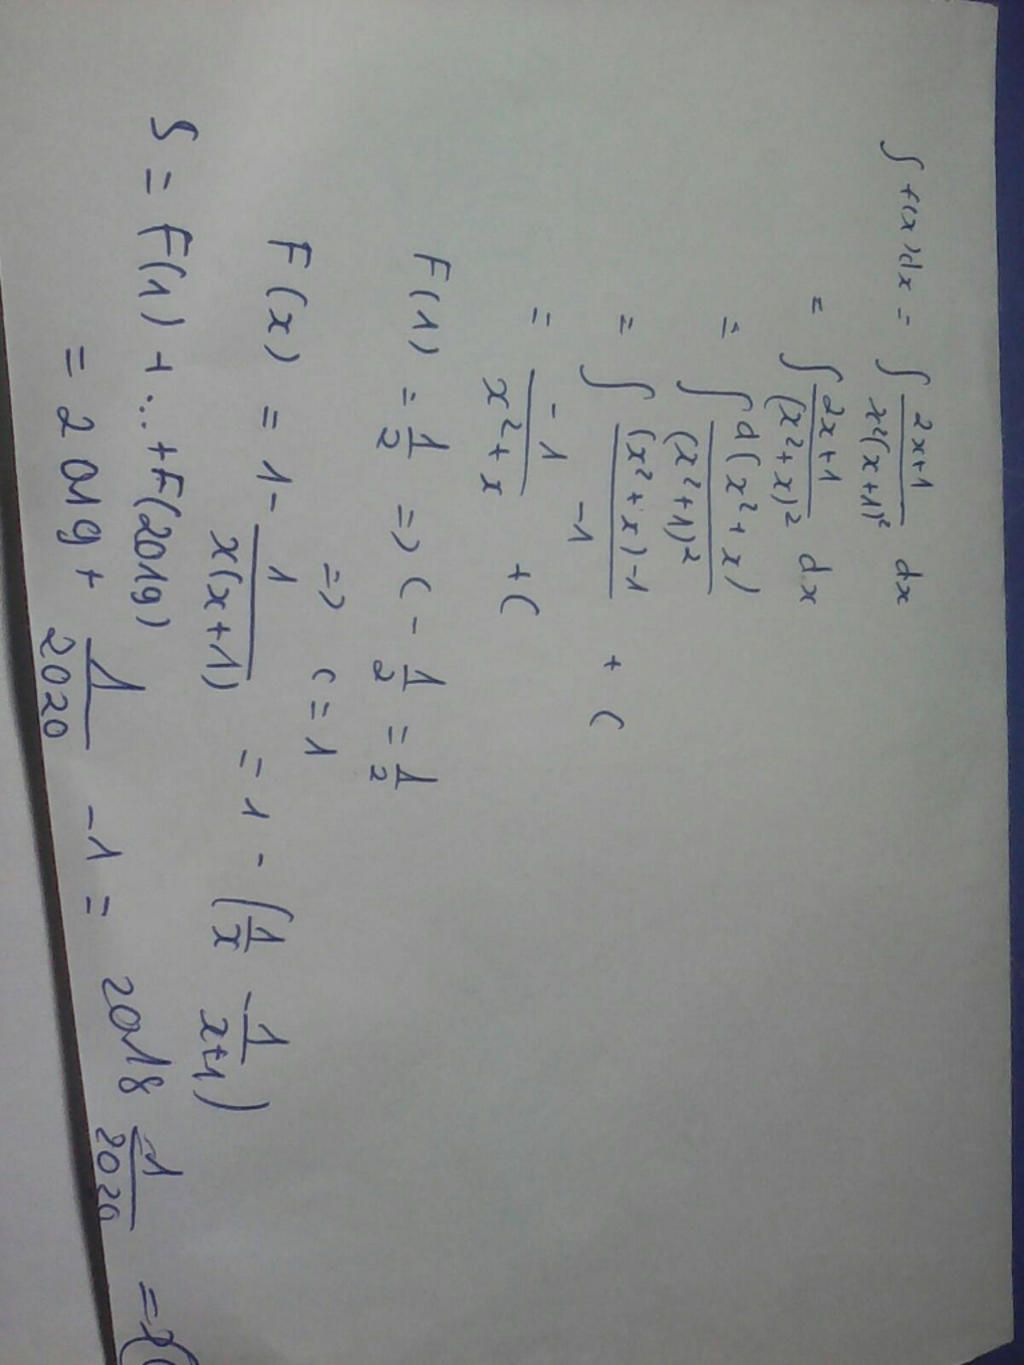 ∫ f(x)dx = ∫ \frac{2x+1}{x²(x+1)²} dx
= ∫ \frac{2x+1}{(x²+x)²} dx
= ∫ \frac{d(x²+x)}{(x²+1)²}
= ∫ \frac{(x²+x)-1}{-1} + C
= \frac{-1}{x²+x} + C
F(1) = \frac{1}{2} => C - \frac{1}{2} = \frac{1}{2}
=> C = 1
F(x) = 1 - \frac{1}{x(x+1)} = 1 - (\frac{1}{x} - \frac{1}{x+1})
S = F(1) + ... + F(2019)
= 2019 + \frac{1}{2020} - 1 = 2018 \frac{1}{2020} =